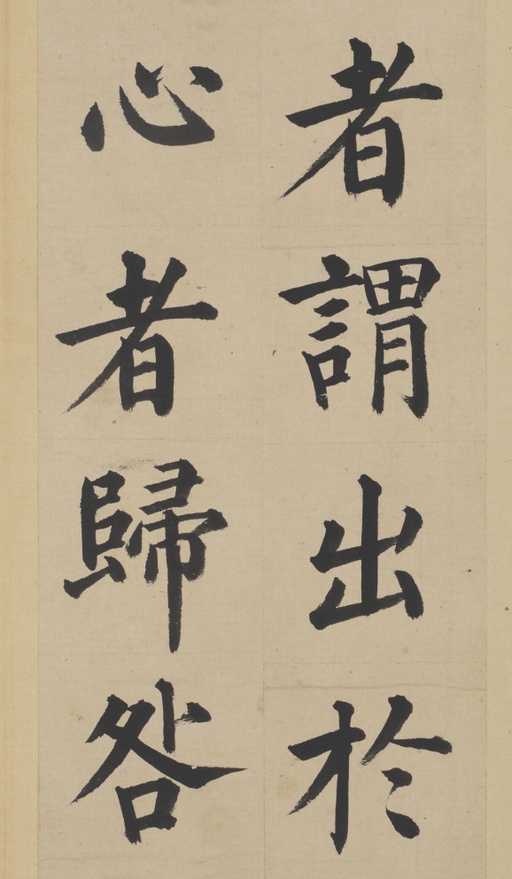 者謂出於
心者歸咎